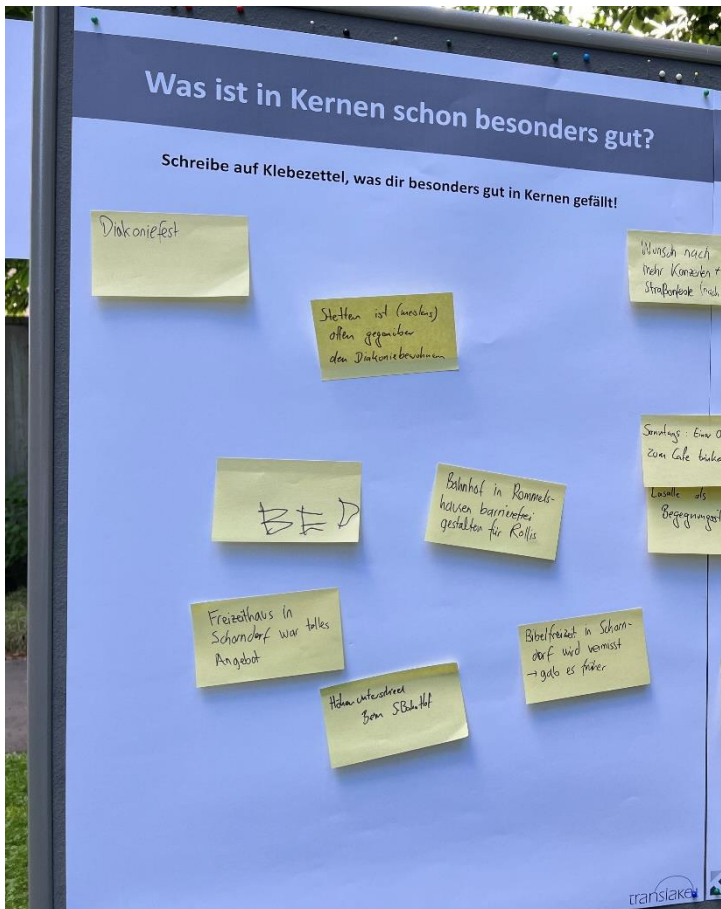 Was ist in Kernen schon besonders gut?
Schreibe auf Klebezettel, was dir besonders gut in Kernen gefällt!
Diakoniefest
Wunsch nach
mehr Konzerten +
Straßenfeste (nach
Stetten ist (meistens)
offen gegenüber
den Diakoniebewohnern
Sonntags: Einen O
zum Cafe trinken
als
Begegnungs
BED
Bahnhof in Rommels-
hausen barrierefrei
gestalten für Rollis
Freizeithaus in
Schorndorf war tolles
Angebot
Bibelfreizeit in Schorn-
dorf wird vermisst
→ gab es früher
Höhenunterschied
Beim S-Bahnhof
translake